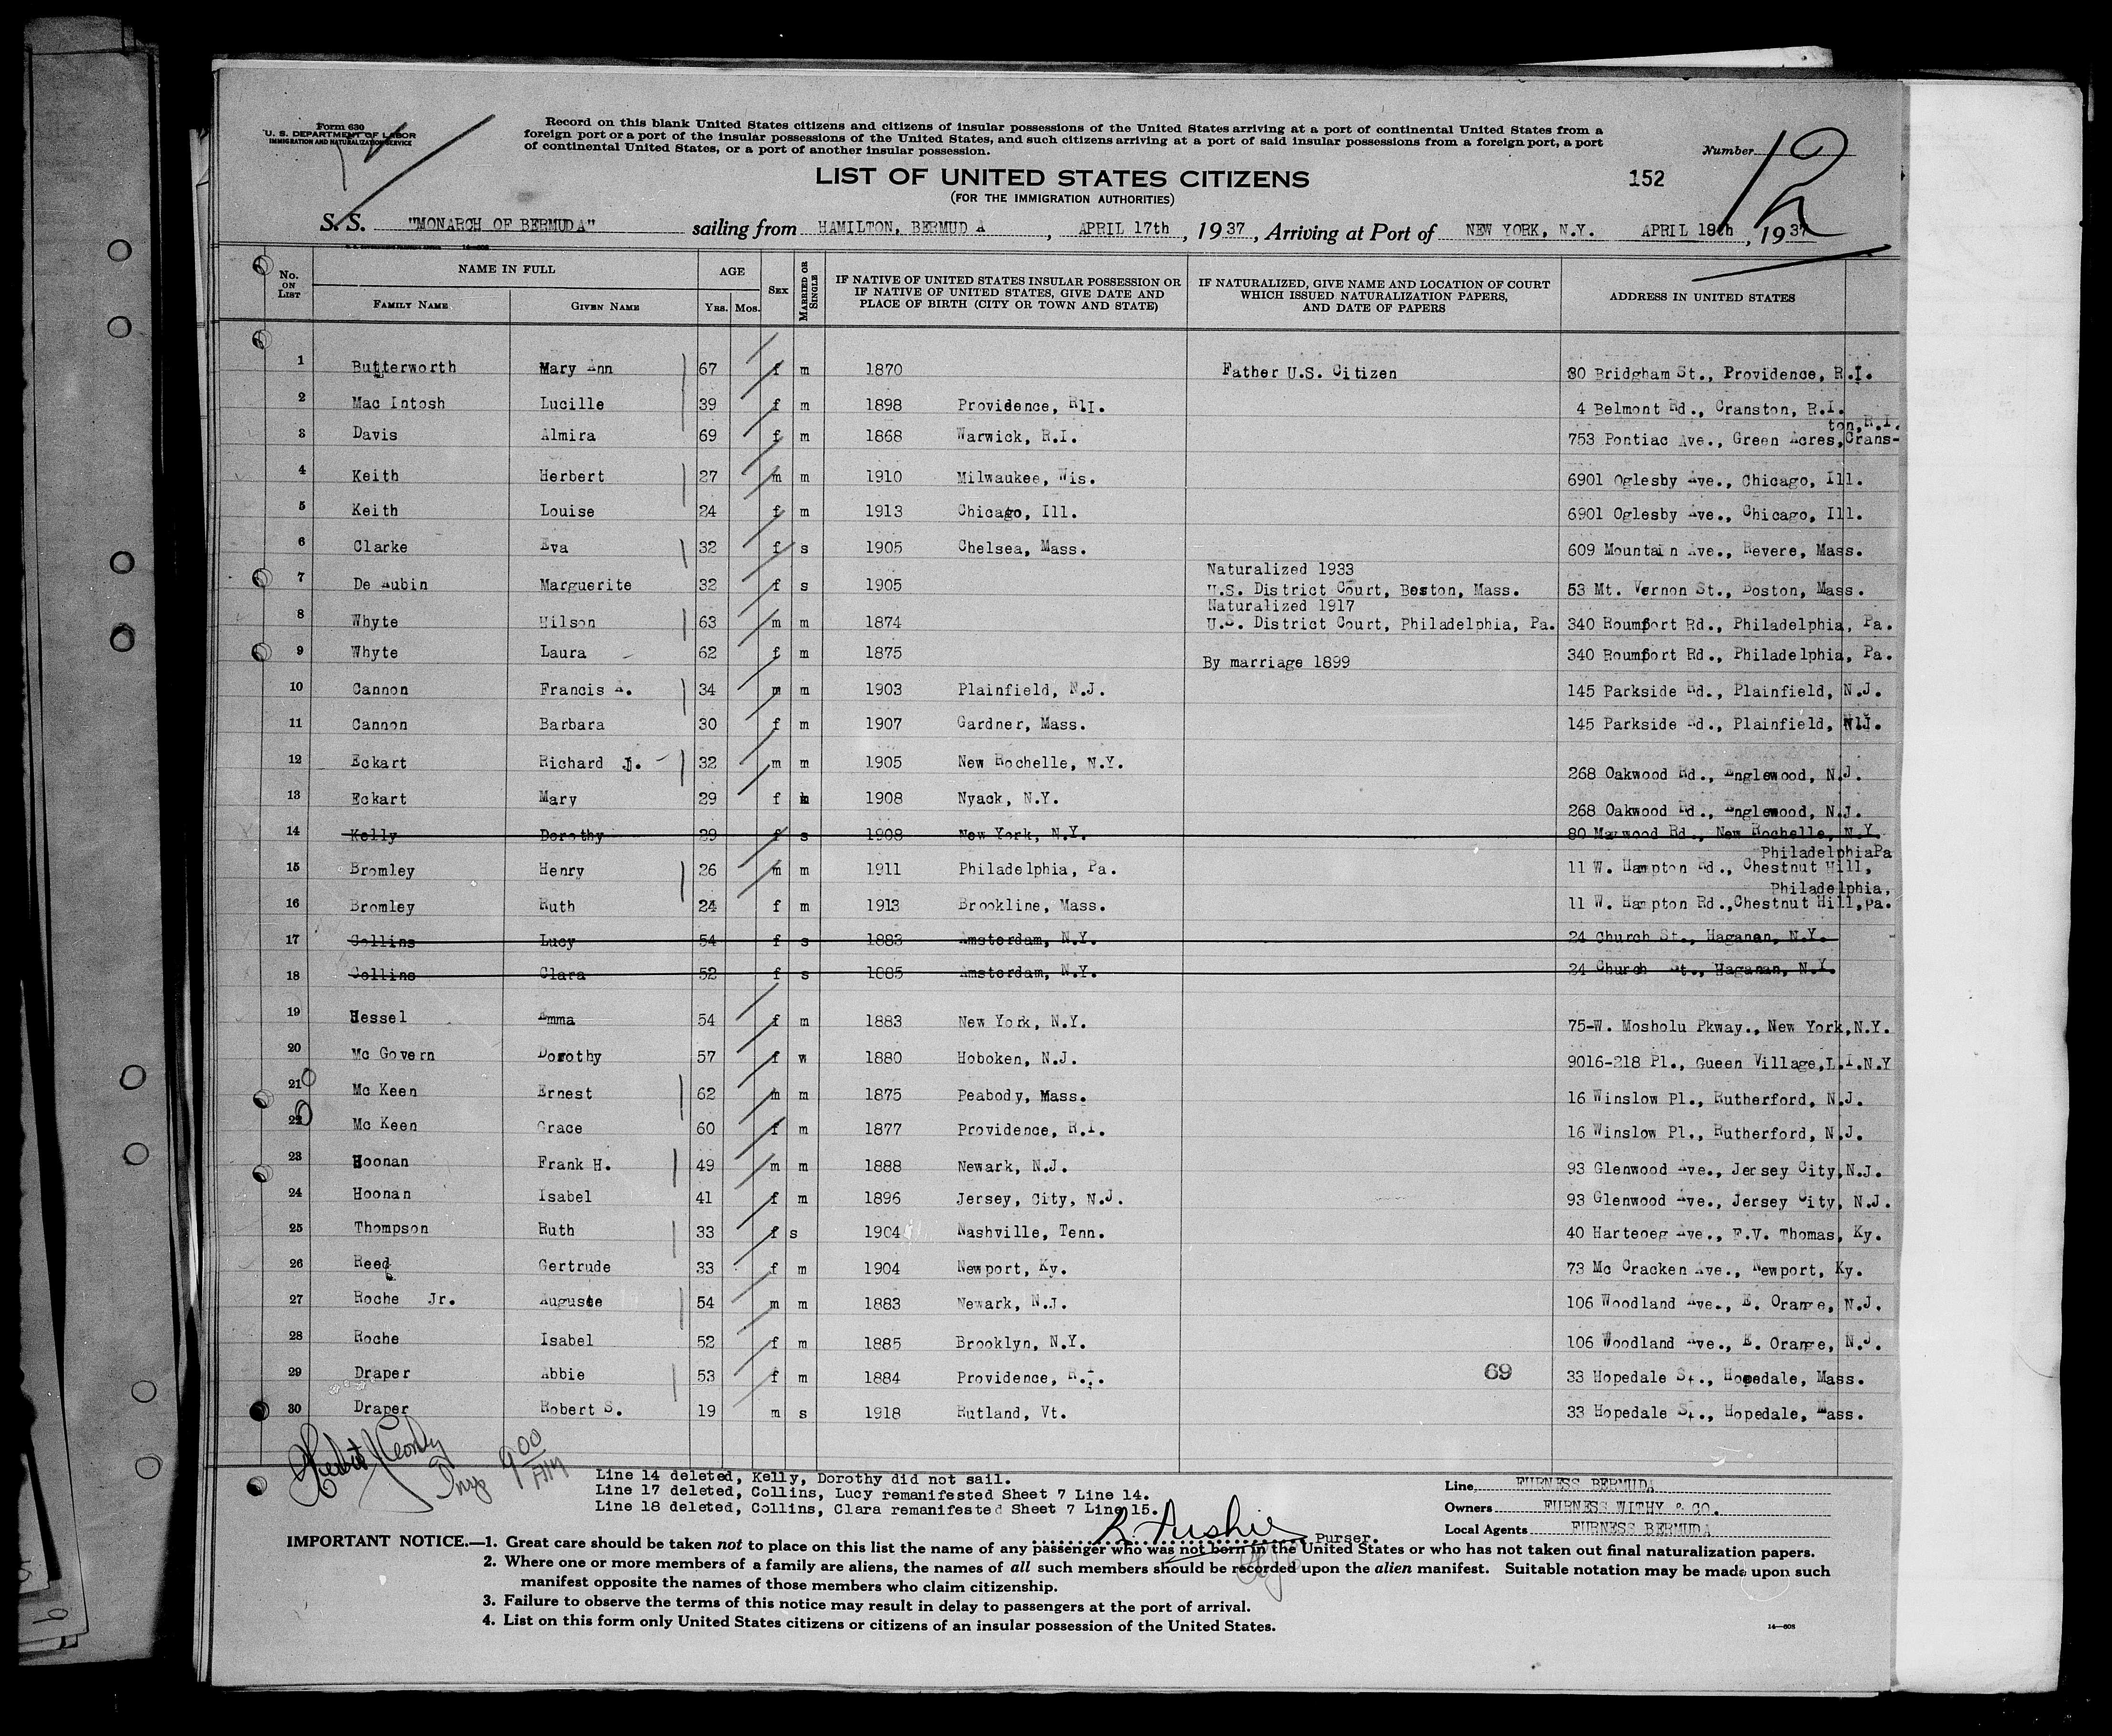 Form 630
U. S. DEPARTMENT OF LABOR
IMMIGRATION AND NATURALIZATION SERVICE
Record on this blank United States citizens and citizens of insular possessions of the United States arriving at a port of continental United States from a
foreign port or a port of the insular possessions of the United States, and such citizens arriving at a port of said insular possessions from a foreign port, a port
of continental United States, or a port of another insular possession.
Number 12
LIST OF UNITED STATES CITIZENS
152
(FOR THE IMMIGRATION AUTHORITIES)
S. S. "MONARCH OF BERMUDA" sailing from HAMILTON, BERMUDA, APRIL 17th, 1937, Arriving at Port of NEW YORK, N.Y. APRIL 19th, 1937
No. ON LIST NAME IN FULL AGE SEX MARRIED OR SINGLE IF NATIVE OF UNITED STATES INSULAR POSSESSION OR IF NATIVE OF UNITED STATES, GIVE DATE AND PLACE OF BIRTH (CITY OR TOWN AND STATE) IF NATURALIZED, GIVE NAME AND LOCATION OF COURT WHICH ISSUED NATURALIZATION PAPERS, AND DATE OF PAPERS ADDRESS IN UNITED STATES
FAMILY NAME GIVEN NAME YRS. MOS.
1 Butterworth Mary Ann 67 f m 1870 Father U.S. Citizen 80 Bridgham St., Providence, R.I.
2 Mac Intosh Lucille 39 f m 1898 Providence, R.I. 4 Belmont Rd., Cranston, R.I.
ton,R.I.
3 Davis Almira 69 f m 1868 Warwick, R.I. 753 Pontiac Ave., Green Acres,Crans-
4 Keith Herbert 27 m m 1910 Milwaukee, Wis. 6901 Oglesby Ave., Chicago, Ill.
5 Keith Louise 24 f m 1913 Chicago, Ill. 6901 Oglesby Ave., Chicago, Ill.
6 Clarke Eva 32 f s 1905 Chelsea, Mass. 609 Mountain Ave., Revere, Mass.
Naturalized 1933
7 De Aubin Marguerite 32 f s 1905 U.S. District Court, Boston, Mass. 53 Mt. Vernon St., Boston, Mass.
Naturalized 1917
8 Whyte Wilson 63 m m 1874 U.S. District Court, Philadelphia, Pa. 340 Roumfort Rd., Philadelphia, Pa.
9 Whyte Laura 62 f m 1875 By marriage 1899 340 Roumfort Rd., Philadelphia, Pa.
10 Cannon Francis A. 34 m m 1903 Plainfield, N.J. 145 Parkside Rd., Plainfield, N.J.
11 Cannon Barbara 30 f m 1907 Gardner, Mass. 145 Parkside Rd., Plainfield, N.J.
12 Eckart Richard J. 32 m m 1905 New Rochelle, N.Y. 268 Oakwood Rd., Englewood, N.J.
13 Eckart Mary 29 f m 1908 Nyack, N.Y. 268 Oakwood Rd., Englewood, N.J.
14 Kelly Dorothy 29 f s 1908 New York, N.Y. 80 Maywood Rd., New Rochelle, N.Y.
PhiladelphiaPa
15 Bromley Henry 26 m m 1911 Philadelphia, Pa. 11 W. Hampton Rd., Chestnut Hill,
Philadelphia,
16 Bromley Ruth 24 f m 1913 Brookline, Mass. 11 W. Hampton Rd.,Chestnut Hill,Pa.
17 Collins Lucy 54 f s 1883 Amsterdam, N.Y. 24 Church St., Haganan, N.Y.
18 Collins Clara 52 f s 1885 Amsterdam, N.Y. 24 Church St., Haganan, N.Y.
19 Hessel Emma 54 f m 1883 New York, N.Y. 75-W. Mosholu Pkway., New York,N.Y.
20 Mc Govern Dorothy 57 f w 1880 Hoboken, N.J. 9016-218 Pl., Gueen Village,L.I.N.Y
21 Mc Keen Ernest 62 m m 1875 Peabody, Mass. 16 Winslow Pl., Rutherford, N.J.
22 Mc Keen Grace 60 f m 1877 Providence, R.I. 16 Winslow Pl., Rutherford, N.J.
23 Hoonan Frank H. 49 m m 1888 Newark, N.J. 93 Glenwood Ave., Jersey City,N.J.
24 Hoonan Isabel 41 f m 1896 Jersey, City, N.J. 93 Glenwood Ave., Jersey City, N.J.
25 Thompson Ruth 33 f s 1904 Nashville, Tenn. 40 Harteoeg Ave., F.V. Thomas, Ky.
26 Reed Gertrude 33 f m 1904 Newport, Ky. 73 Mc Cracken Ave., Newport, Ky.
27 Roche Jr. Auguste 54 m m 1883 Newark, N.J. 106 Woodland Ave., E. Orange, N.J.
28 Roche Isabel 52 f m 1885 Brooklyn, N.Y. 106 Woodland Ave., E. Orange, N.J.
29 Draper Abbie 53 f m 1884 Providence, R.I. 69 33 Hopedale St., Hopedale, Mass.
30 Draper Robert S. 19 m s 1918 Rutland, Vt. 33 Hopedale St., Hopedale, Mass.
Insp 9 00 AM
Line 14 deleted, Kelly, Dorothy did not sail.
Line 17 deleted, Collins, Lucy remanifested Sheet 7 Line 14.
Line 18 deleted, Collins, Clara remanifested Sheet 7 Line 15.
Purser.
Line FURNESS BERMUDA
Owners FURNESS WITHY & CO.
Local Agents FURNESS BERMUDA
IMPORTANT NOTICE.—1. Great care should be taken not to place on this list the name of any passenger who was not born in the United States or who has not taken out final naturalization papers.
2. Where one or more members of a family are aliens, the names of all such members should be recorded upon the alien manifest. Suitable notation may be made upon such
manifest opposite the names of those members who claim citizenship.
3. Failure to observe the terms of this notice may result in delay to passengers at the port of arrival.
4. List on this form only United States citizens or citizens of an insular possession of the United States.
14—608